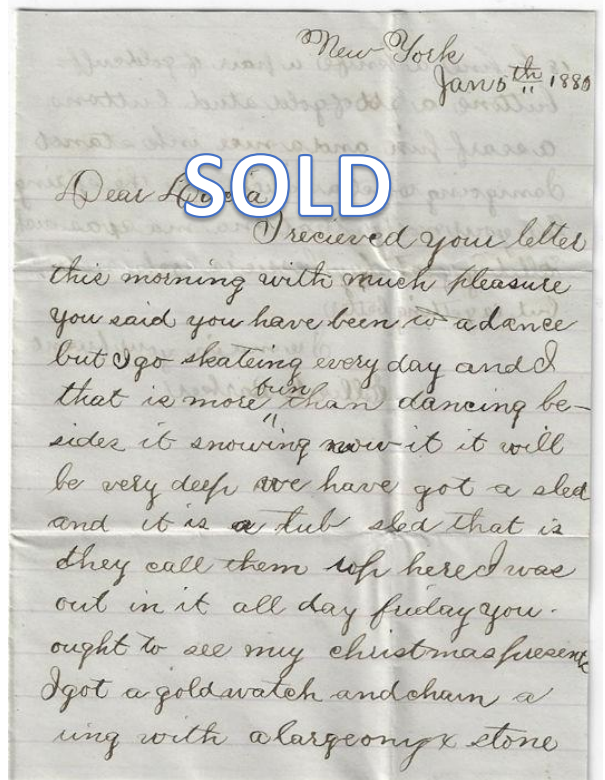 New York
Jan 5th 1880
SOLD
Dear
I recieved your letter
this morning with much pleasure
you said you have been to a dance
but I go skateing every day and I
fun
that is more than dancing be-
sides it snowing now it it will
be very deep we have got a sled
and it is a tub sled that is
they call them up here I was
out in it all day friday you
ought to see my christmas presents
I got a gold watch and chain a
ring with a large onyx stone